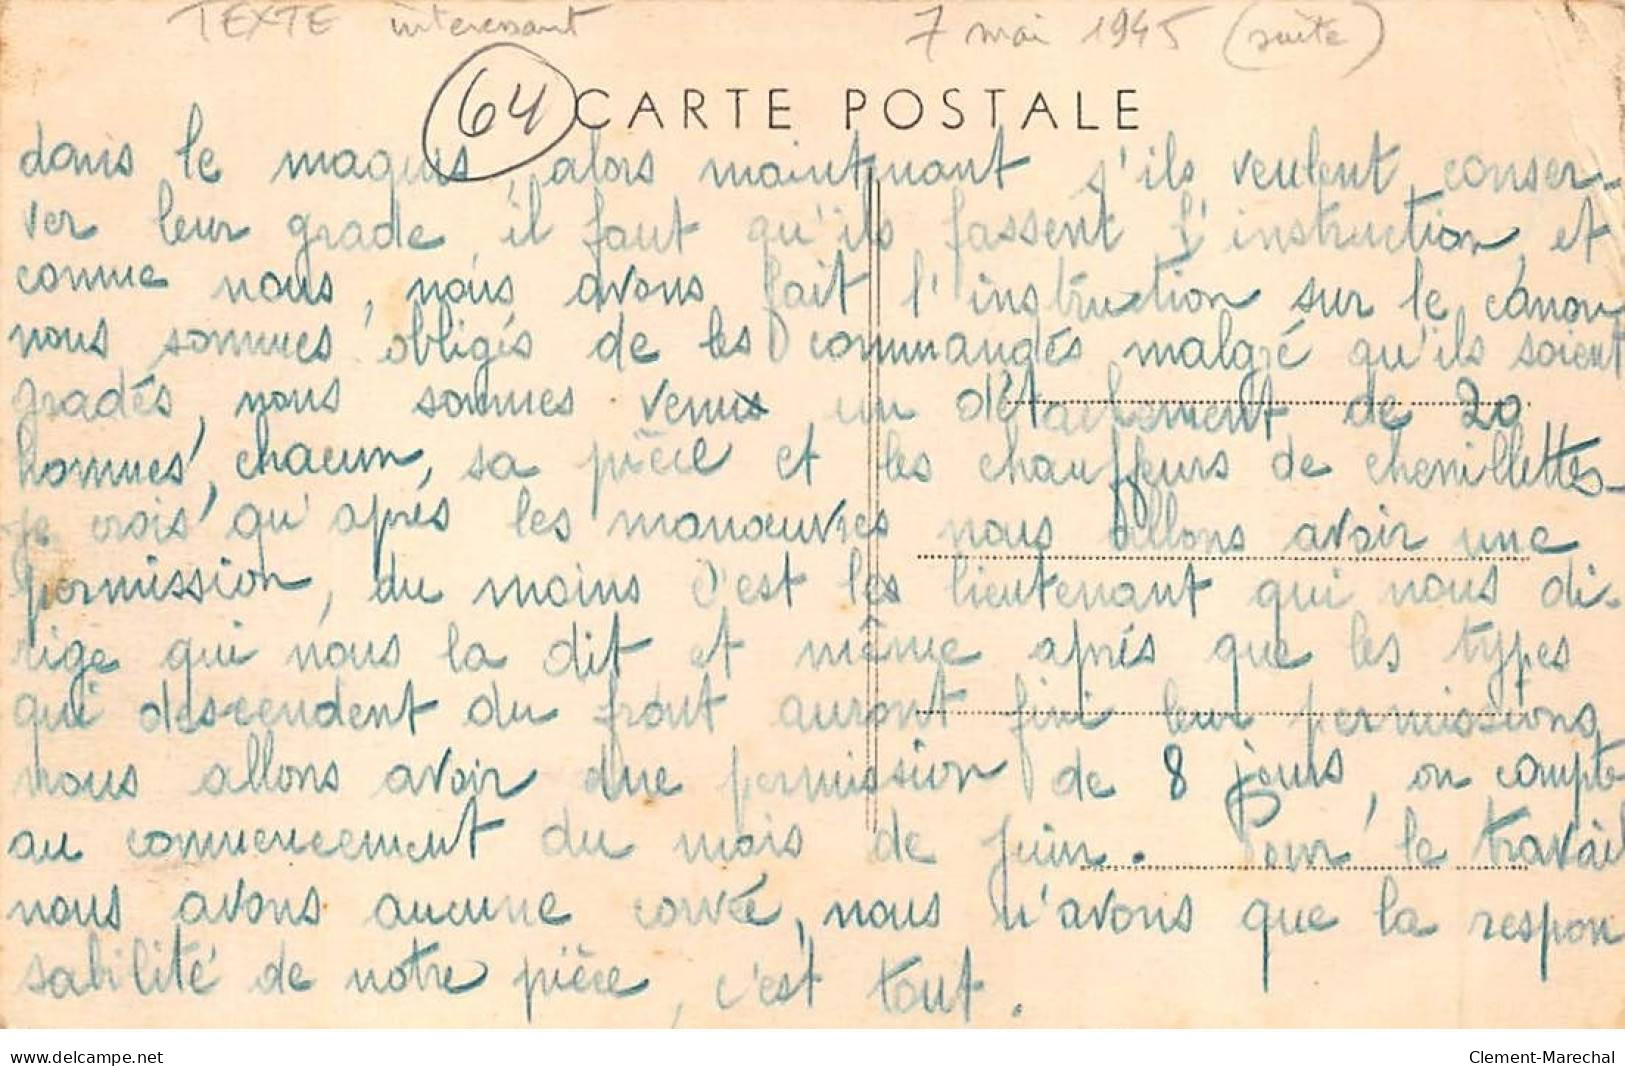 TEXTE interessant 7 mai 1945 (suite)
64 CARTE POSTALE
dans le maquis, alors maintenant s'ils veulent conser-
ver leur grade il faut qu'ils fassent l'instruction, et
comme nous, nous avons fait l'instruction sur le canon
nous sommes obligés de les commandés malgré qu'ils soient
gradés, nous sommes venus un détachement de 20
hommes, chacun, sa pièce et les chauffeurs de chenillettes-
je crois qu'après les manœuvres nous allons avoir une
permission, du moins c'est les lieutenant qui nous di-
rige qui nous la dit et même après que les types
qui descendent du front auront fini leur permissions
nous allons avoir une permission de 8 jours, on compte
au commencement du mois de juin. Pour le travail
nous avons aucune corvée, nous n'avons que la respon
sabilité de notre pièce, c'est tout.
www.delcampe.net Clement-Marechal